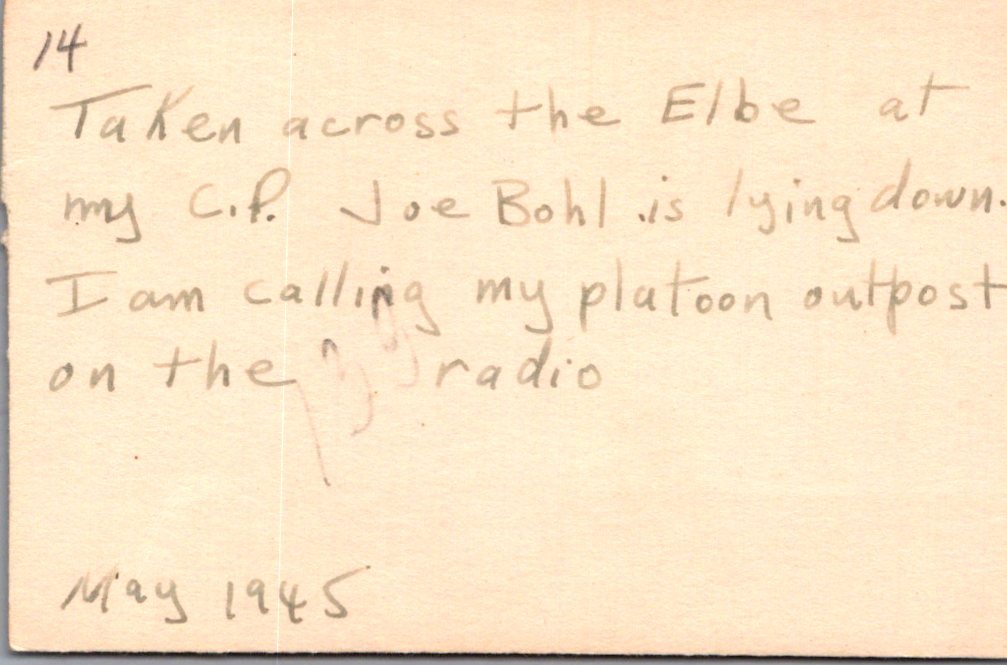 14
Taken across the Elbe at
my C.P. Joe Bohl is lying down.
I am calling my platoon outpost
on the radio
May 1945